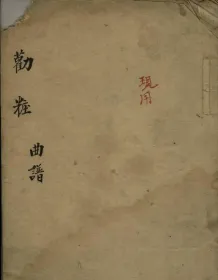 勸粧 曲譜
現用